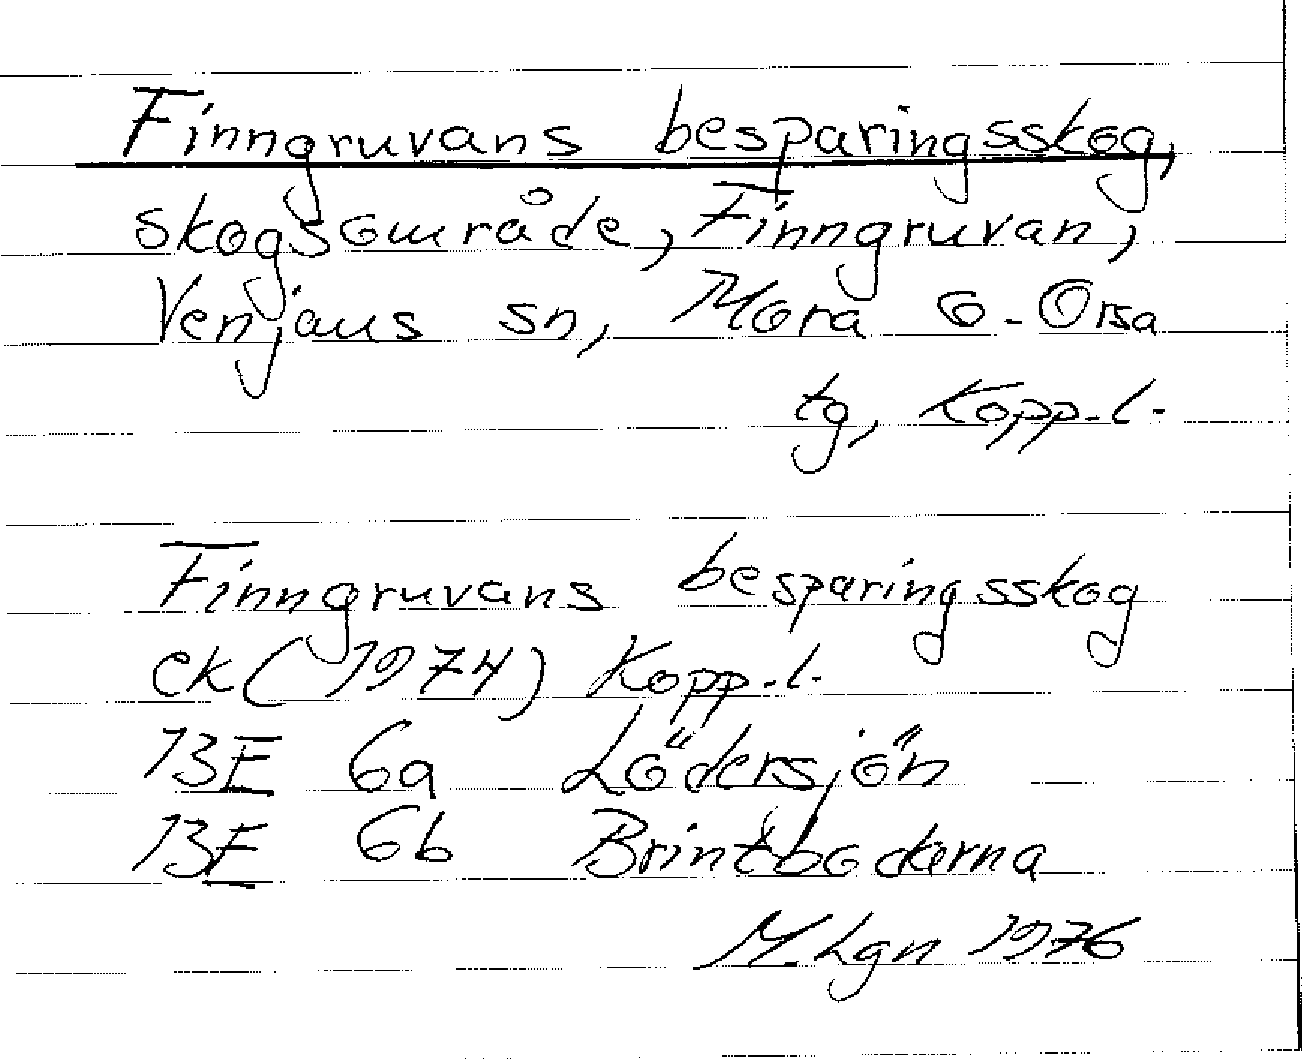 Finngruvans besparingsskog,
skogsområde, Finngruvan,
Venjans sn, Mora o. Orsa
tg, Kopp. l.
Finngruvans besparingsskog
ek (1974) Kopp. l.
13E 6a Lödersjön
13E 6b Brintbodarna
M. Lgn 1976